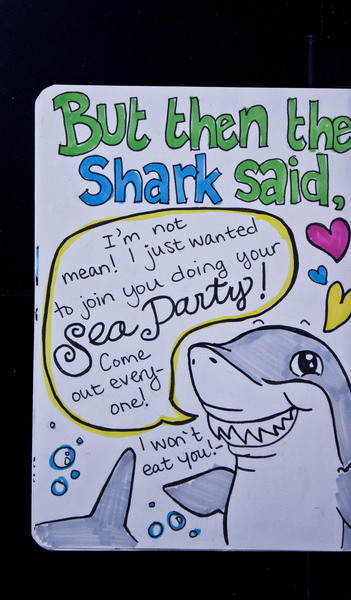 But then the
Shark said,
I'm not
mean! I just wanted
to join you doing your
Sea Party!
Come
out every-
one!
I won't
eat you!-